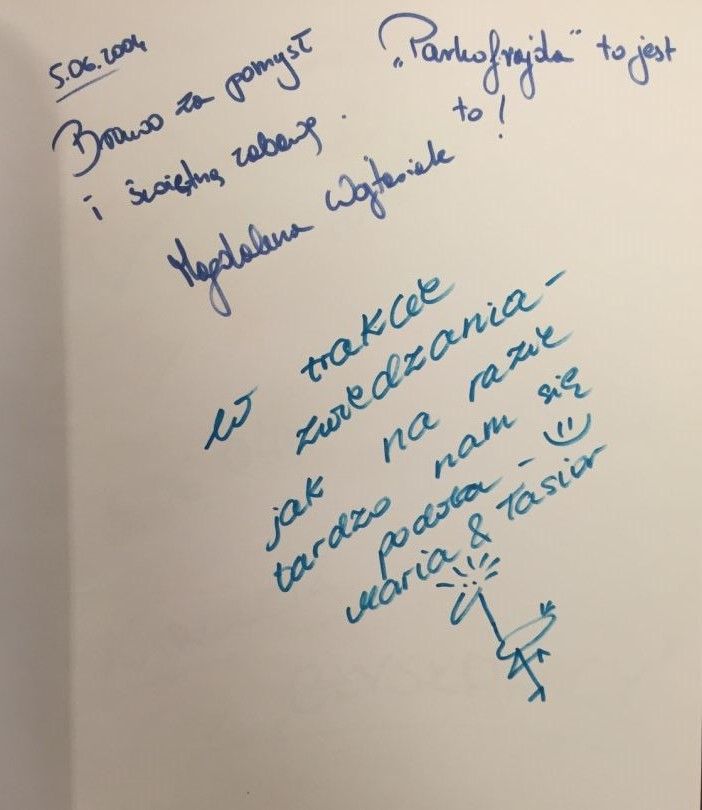 5.06.2004
Brawo za pomysł
i świetną zabawę.
„Parkofrajda" to jest
to!
Magdalena Wojtasiak
W trakcie
zwiedzania -
jak na razie
bardzo nam się
podoba - :)
Maria & Tasior